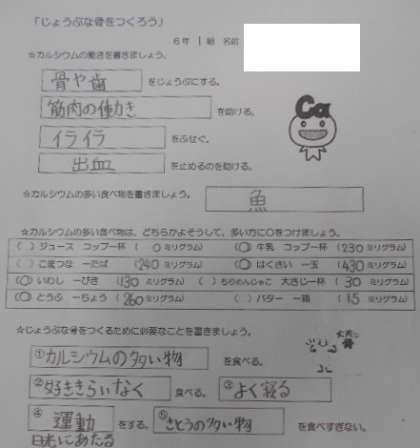 「じょうぶな骨をつくろう」
6年 1組 名前
☆カルシウムの働きを書きましょう。
骨や歯 をじょうぶにする。
筋肉の働き を助ける。
イライラ をふせぐ。
出血 を止めるのを助ける。
Ca
☆カルシウムの多い食べ物を書きましょう。 魚
☆カルシウムの多い食べ物は、どちらかよそうして、多い方に○をつけましょう。
( ) ジュース コップ一杯 ( 0 ミリグラム) (○) 牛乳 コップ一杯 (230 ミリグラム)
( ) こまつな 一たば (240 ミリグラム) (○) はくさい 一玉 (430 ミリグラム)
(○) いわし 一ぴき (130 ミリグラム) ( ) ちりめんじゃこ 大さじ一杯 (30 ミリグラム)
(○) とうふ 一ちょう (260 ミリグラム) ( ) バター 一箱 (15 ミリグラム)
☆じょうぶな骨をつくるために必要なことを書きましょう。
①カルシウムの多い物 を食べる。
②好ききらいなく 食べる。 ③よく寝る
④運動 をする。 ⑤さとうの多い物 を食べすぎない。
日光にあたる